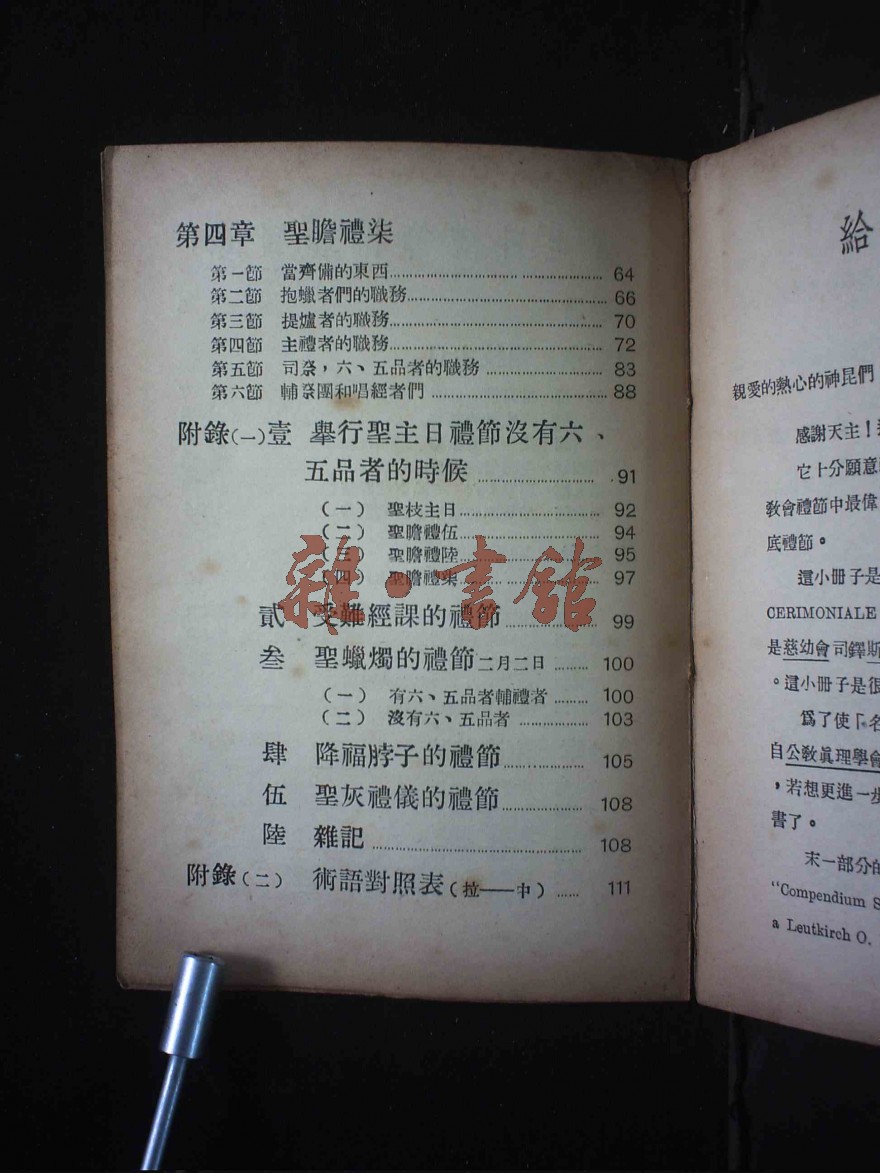 第四章 聖瞻禮柒
第一節 當齊備的東西 64
第二節 抱蠟者們的職務 66
第三節 提爐者的職務 70
第四節 主禮者的職務 72
第五節 司祭,六、五品者的職務 83
第六節 輔祭團和唱經者們 88
附錄(一)壹 舉行聖主日禮節沒有六、
五品者的時候 91
(一) 聖枝主日 92
(二) 聖瞻禮伍 94
(三) 聖瞻禮陸 95
(四) 聖瞻禮柒 97
貳 受難經課的禮節 99
叁 聖蠟燭的禮節二月二日 100
(一) 有六、五品者輔禮者 100
(二) 沒有六、五品者 103
肆 降福脖子的禮節 105
伍 聖灰禮儀的禮節 108
陸 雜記 108
附錄(二) 術語對照表(拉——中) 111
雜·書館
給
親愛的熱心的神昆們
感謝天主!
它十分願意
敎會禮節中最偉
底禮節。
這小冊子是
CERIMONIALE
是慈幼會司鐸斯
。這小冊子是很
爲了使「名
自公敎眞理學會
,若想更進一步
書了。
末一部分的
"Compendium S
a Leutkirch O.